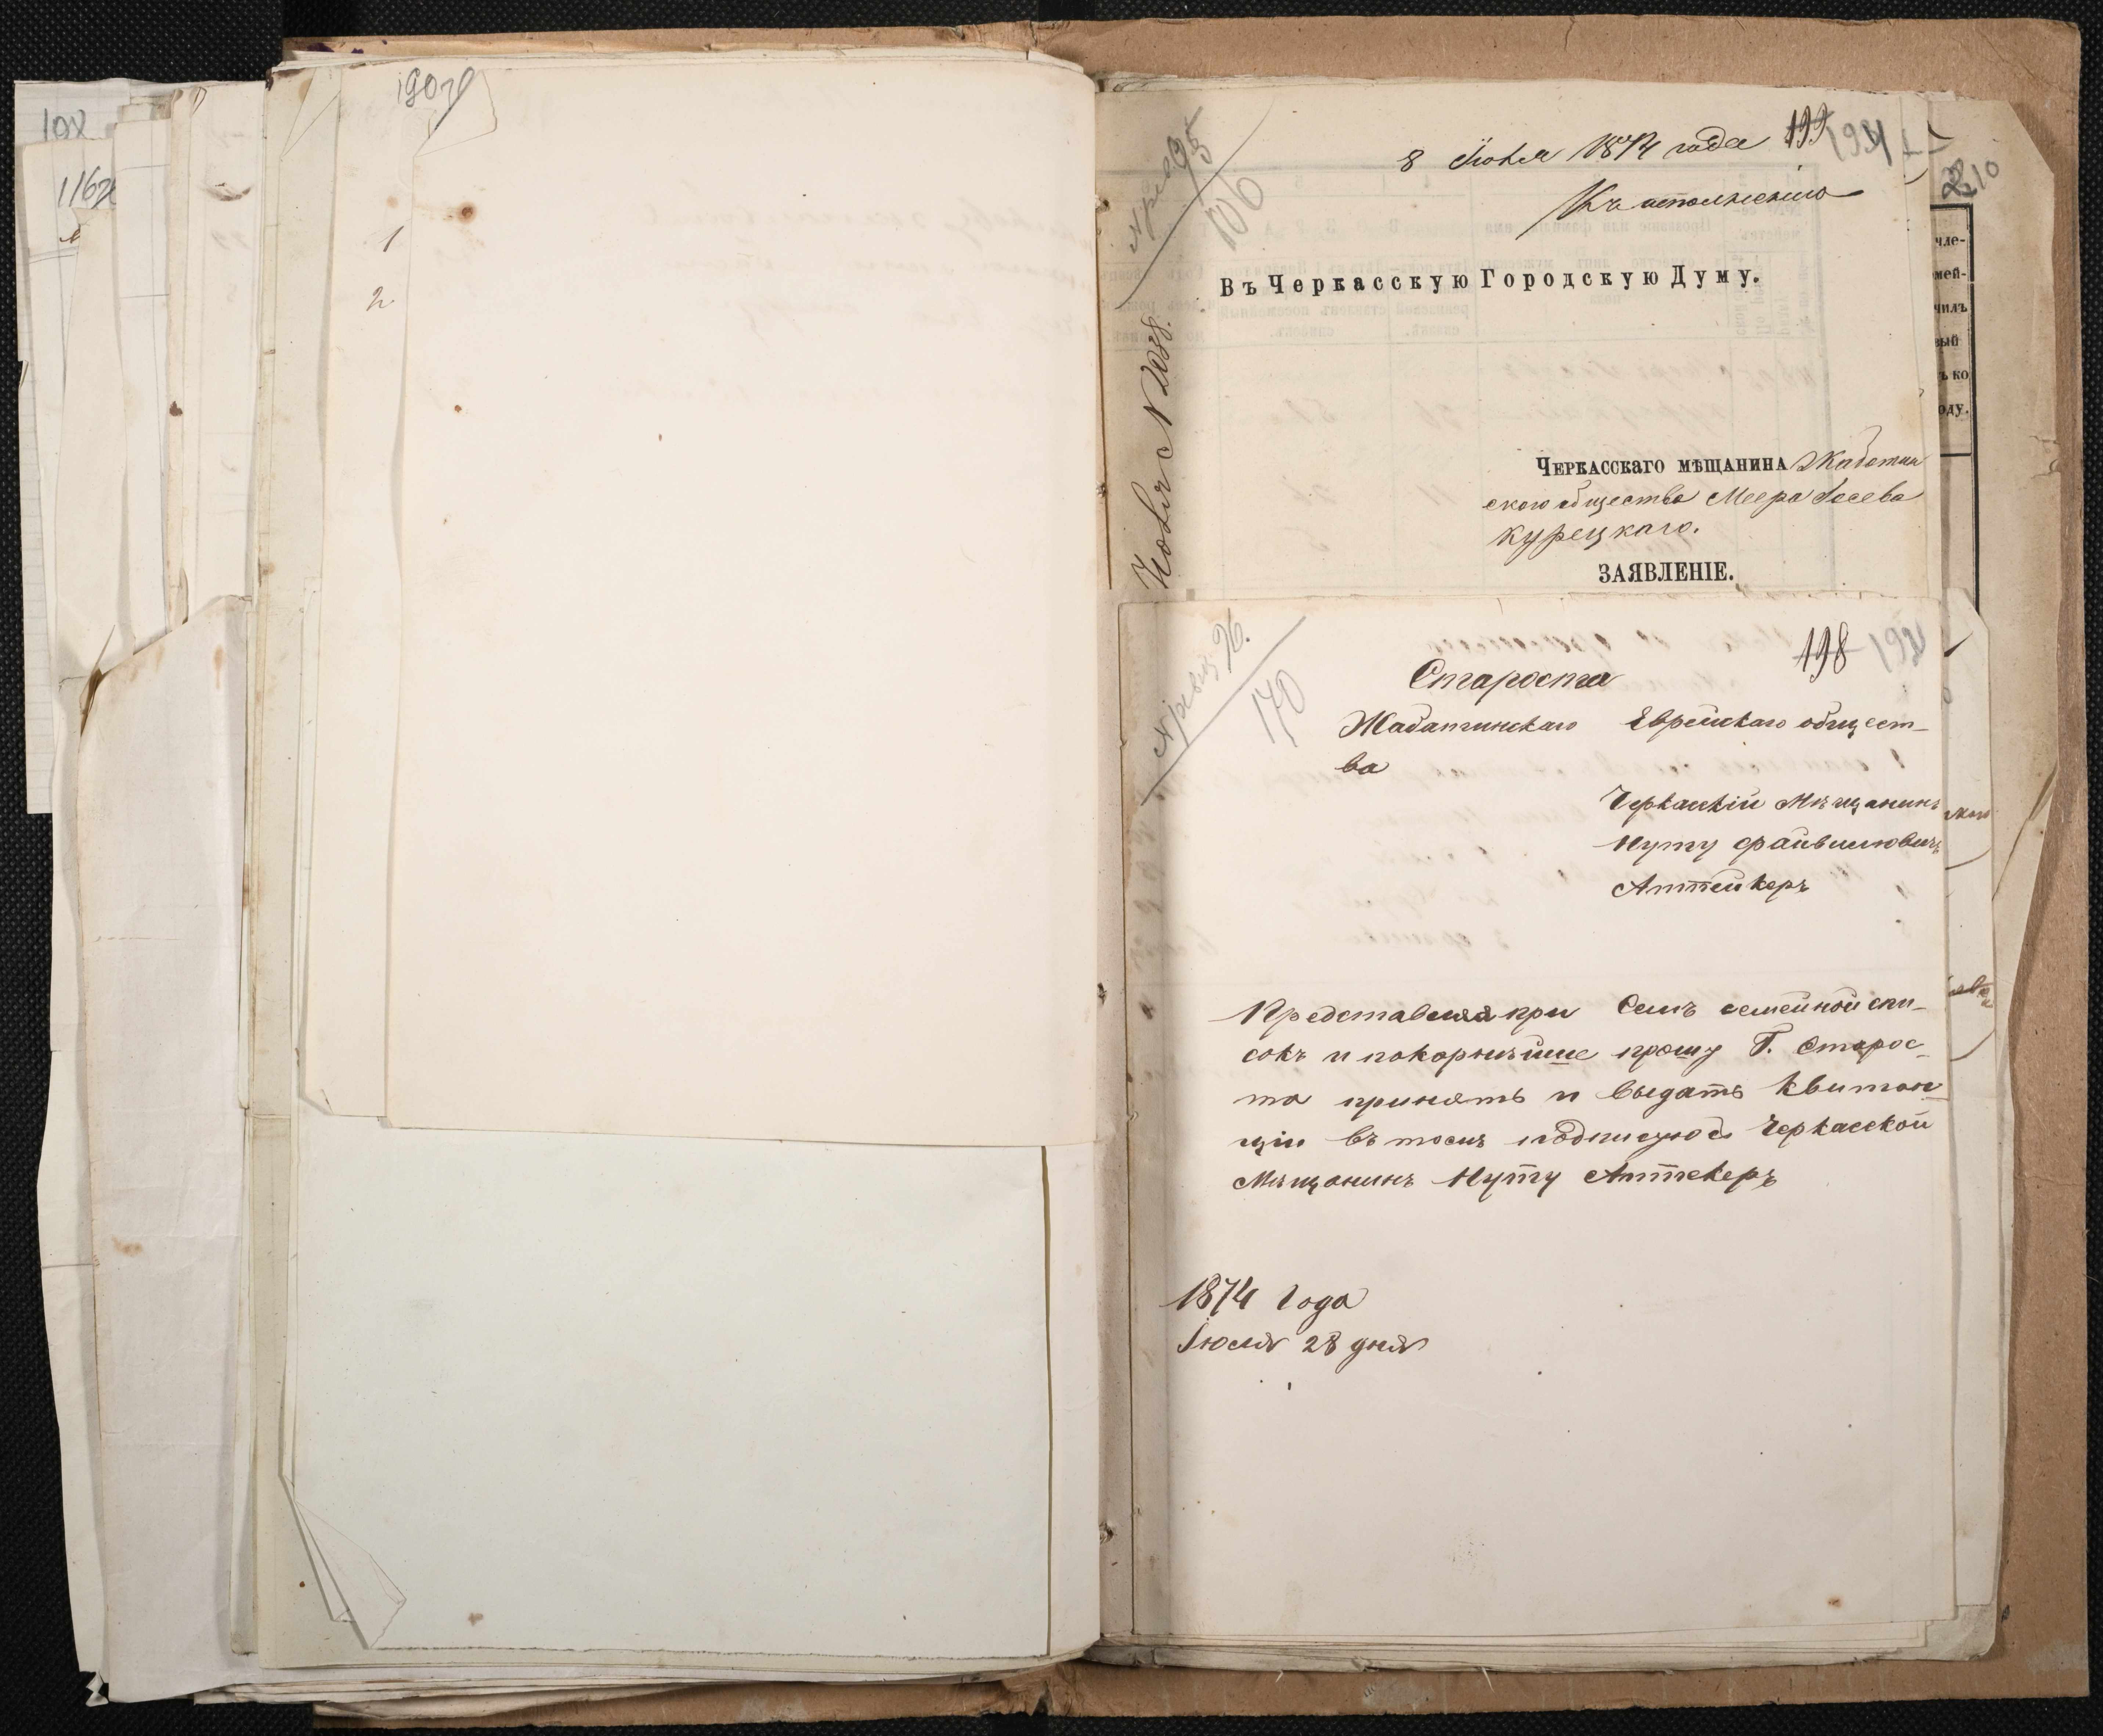 190
1
2
108
116
8 Іюля 1874 года 199 194
Къ исполненію
210
Въ Черкасскую Городскую Думу.
Новъ с N 2038.
106
Черкасскаго мѣщанина Жаботин
скаго общества Меера Іосева
Курецкаго.
ЗАЯВЛЕНІЕ.
чле-
мей-
чилъ
вый
ъ ко
оду.
198
170
Староста
Жаботинскаго Еврейскаго общест-
ва
Черкаскій Мѣщанинъ
Нуту Файвишовичъ
Аптейкеръ
Представляя при Семъ семейной спи-
сокъ и покорнѣйше прошу Г. Старос-
та принять и выдать Квитан-
ціи въ томъ подписуюсь Черкаской
Мѣщанинъ Нуту Аптекеръ
1874 Года
Іюля 28 дня